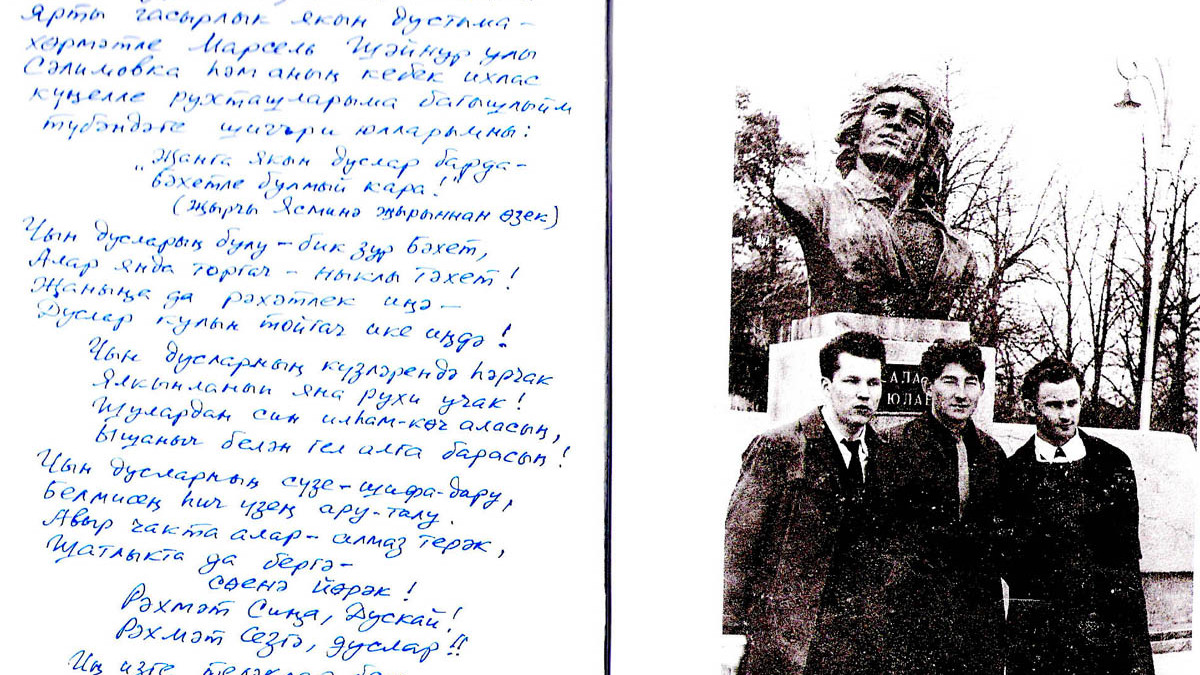 Ярты гасырлык якын дустыма –
хөрмәтле Марсель Шәйнур улы
Сәлимовка һәм аның кебек ихлас
күңелле рухташларыма багышлыйм
түбәндәге шигъри юлларымны:
"Җанга якын дуслар барда –
бәхетле булмый кара!"
(Җырчы Ясминә җырыннан өзек)
Чын дусларың булу – бик зур бәхет,
Алар янда торгач – ныклы тәхет!
Җаныңа да рәхәтлек иңә –
Дуслар кулын тойгач ике иңдә!
Чын дусларның күзләрендә һәрчак
Ялкынланып яна рухи учак!
Шулардан син илһам-көч аласың,
Ышаныч белән гел алга барасың!
Чын дусларның сүзе – шифа-дару,
Белмисең һич үзең ару-талу.
Авыр чакта алар – алмаз терәк,
Шатлыкта да бергә –
сөенә йөрәк!
Рәхмәт Сиңа, Дускай!
Рәхмәт Сезгә, дуслар!!
Иң изге теләкләр
САЛА
ЮЛА